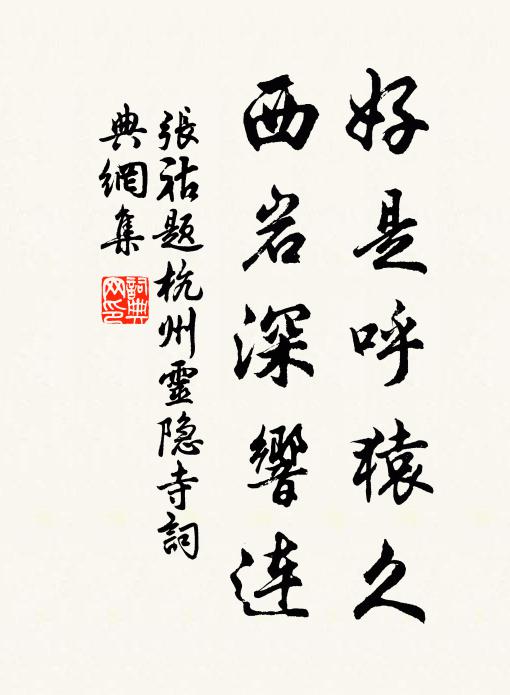 好是呼猿久
西岩深響連
張祜題杭州靈隐寺詞
典網集
詞典
网印